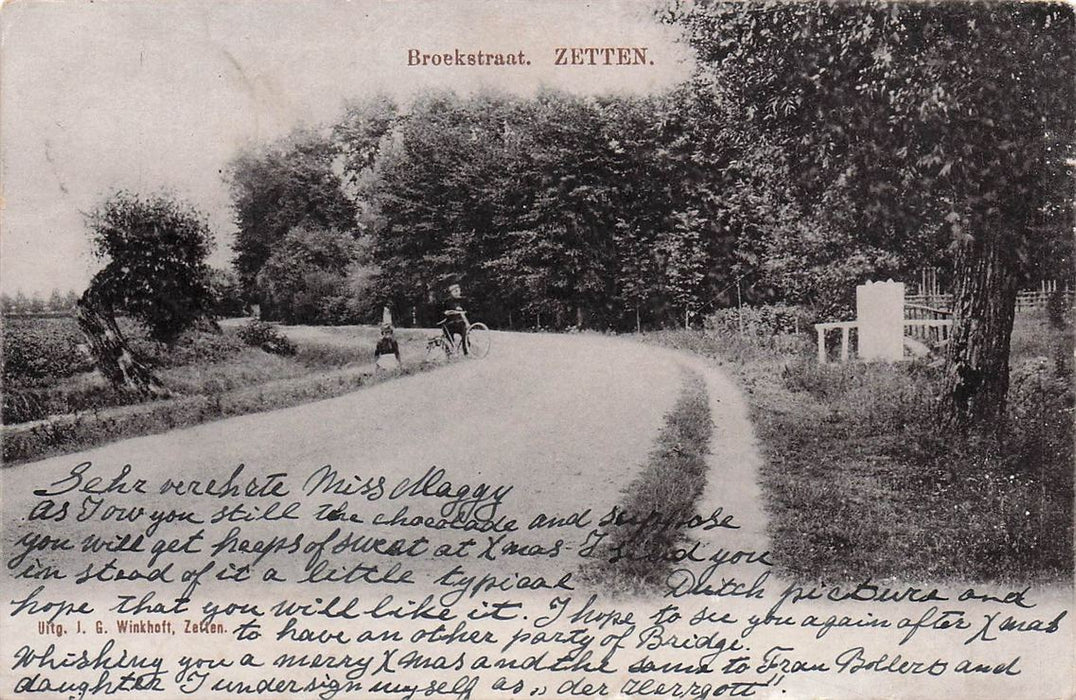 Broekstraat. ZETTEN.
Sehr verehrte Miss Maggy
as I ow you still the chocolade and suppose
you will get heeps of sweat at Xmas I send you
in stead of it a little typical Dutch picture and
hope that you will like it. I hope to see you again after Xmas
Uitg. J. G. Winkhoft, Zetten.
to have an other party of Bridge.
Whishing you a merry Xmas and the same to Frau Bollert and
daughter I undersign myself as „der Herrgott"